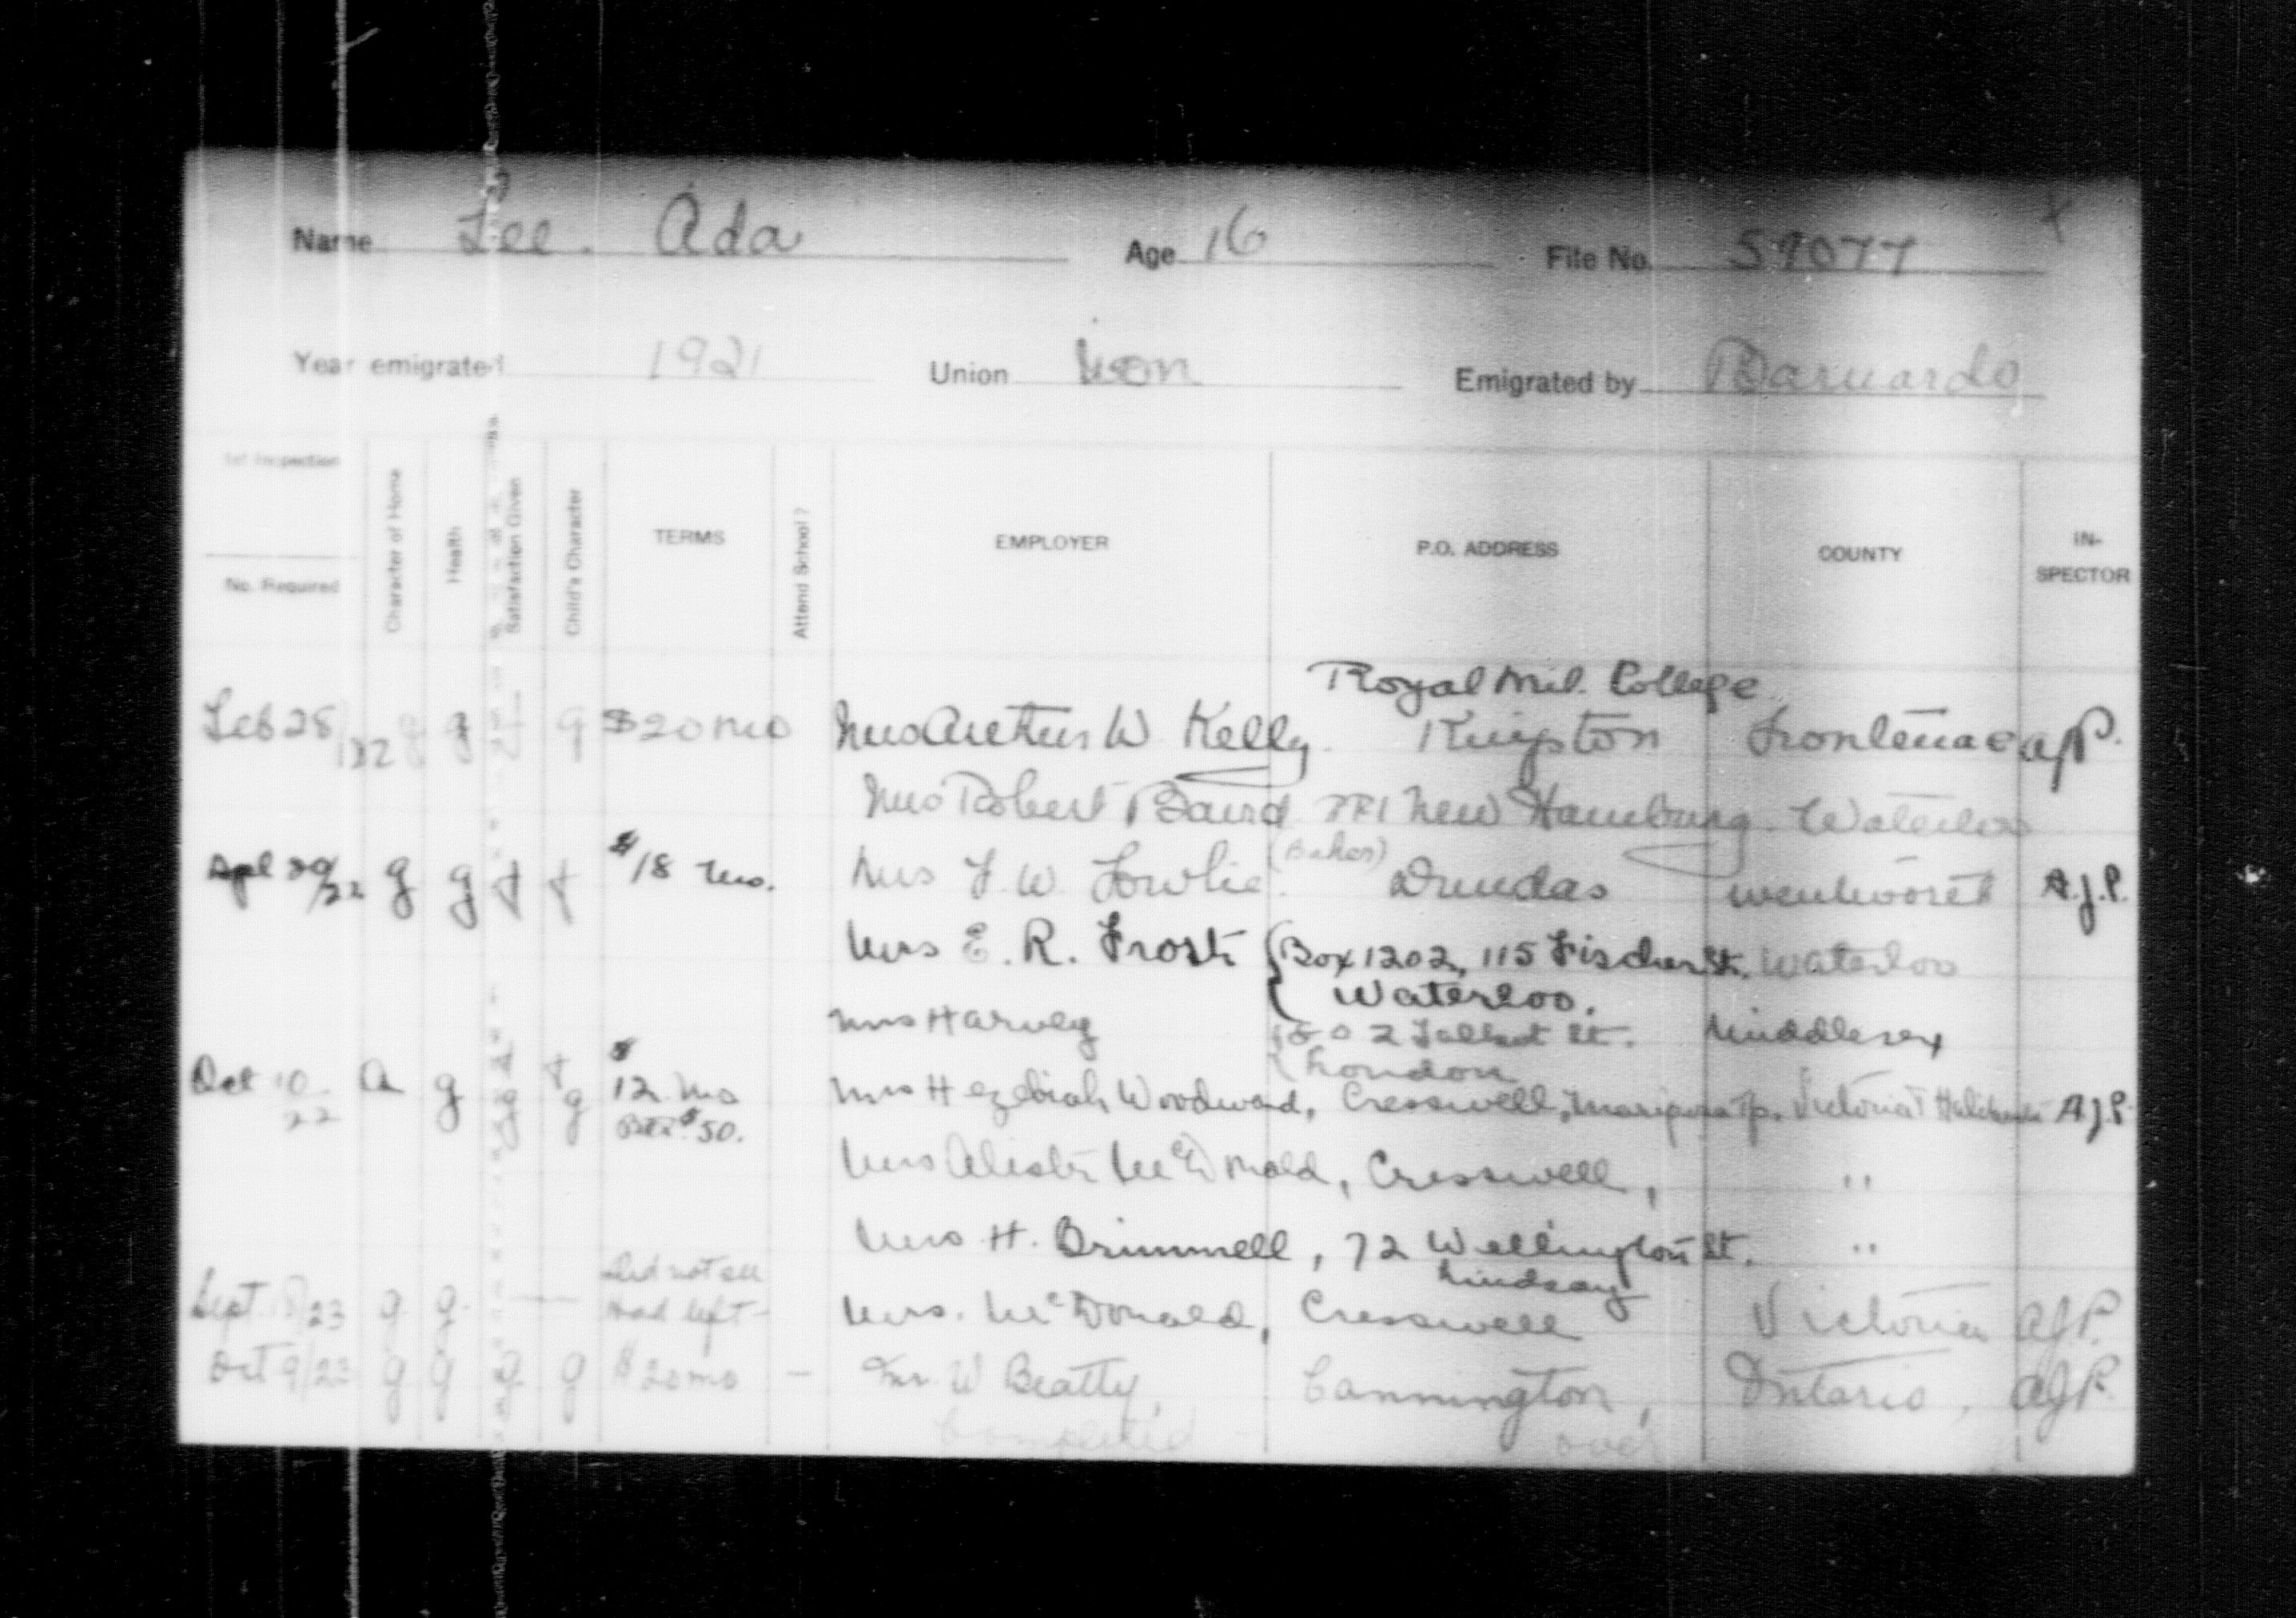 Name Lee. Ada Age 16 File No. 59077
Year emigrated 1921 Union Non Emigrated by Barnardo
1st Inspection
No. Required
Character of Home
Health
Satisfaction Given
Child's Character
TERMS
Attend School?
EMPLOYER
P.O. ADDRESS
COUNTY
IN-
SPECTOR
Royal Mil. College
Feb 28/22 g g g $20 mo Mrs Arthur W Kelly. Kingston Frontenac AJP.
Mrs Robert Baird RR1 New Hamburg. Waterloo
(Baker)
Apl 29/22 g g f f $18 mo. Mrs F. W. Fowlie. Dundas Wentworth A.J.P.
Mrs E. R. Frost Box 1202, 115 Fischer St. Waterloo
Waterloo.
Mrs Harvey 802 Talbot St. Middlesex
London
Oct 10 22 a g g f g $12 mo Mrs Hezekiah Woodward, Cresswell, Mariposa Tp. Victoria Haliburton A.J.P.
$50.
Mrs Alister McDonald, Cresswell, "
Mrs H. Brimmell, 72 Wellington St. "
Lindsay
Did not see
Sept 23 g g. — had left - Mrs. McDonald, Cresswell Victoria AJP.
Oct 9/23 g g g g $20 mo — Mr W Beatty, Cannington, Ontario, AJP.
Completed - over